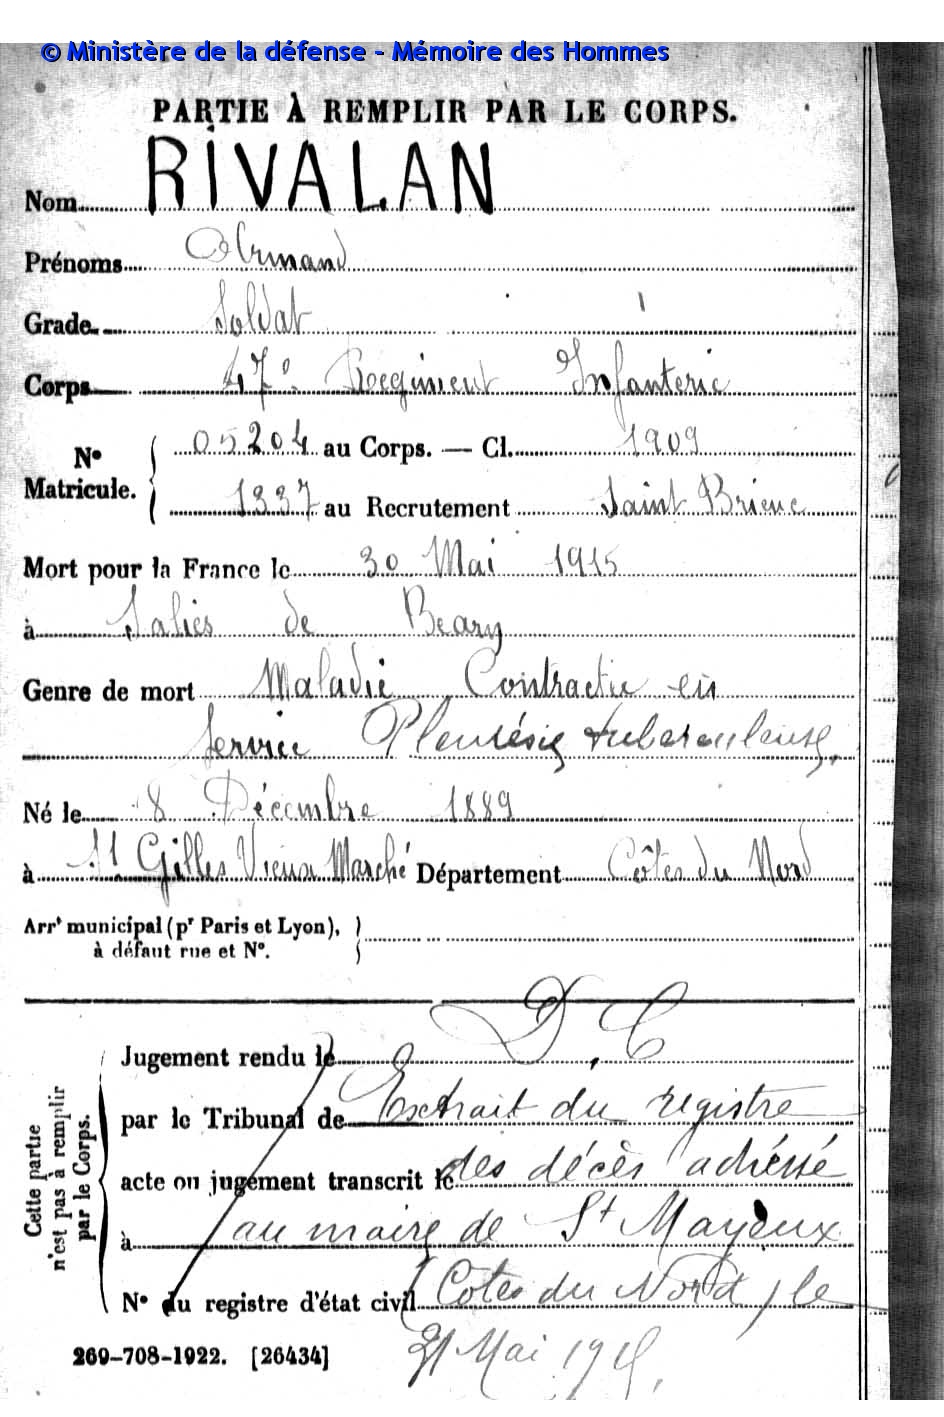 © Ministère de la défense - Mémoire des Hommes
PARTIE À REMPLIR PAR LE CORPS.
Nom RIVALAN
Prénoms Armand
Grade Soldat
Corps 47e Regiment Infanterie
No Matricule. 05204 au Corps. — Cl. 1909
1337 au Recrutement Saint Brieuc
Mort pour la France le 30 Mai 1915
à Salies de Bearn
Genre de mort Maladie Contractée en
Service Pleurésie tuberculeuse.
Né le 8 Décembre 1889
à St Gilles Vieux Marché Département Côtes du Nord
Arrt municipal (pr Paris et Lyon),
à défaut rue et No.
D. C
Cette partie
n'est pas à remplir
par le Corps.
Jugement rendu le
par le Tribunal de Extrait du registre
acte ou jugement transcrit le des décès adréssé
à au maire de St Mayeux
No du registre d'état civil (Cotes du Nord) le
31 Mai 1915.
269-708-1922. [26434]